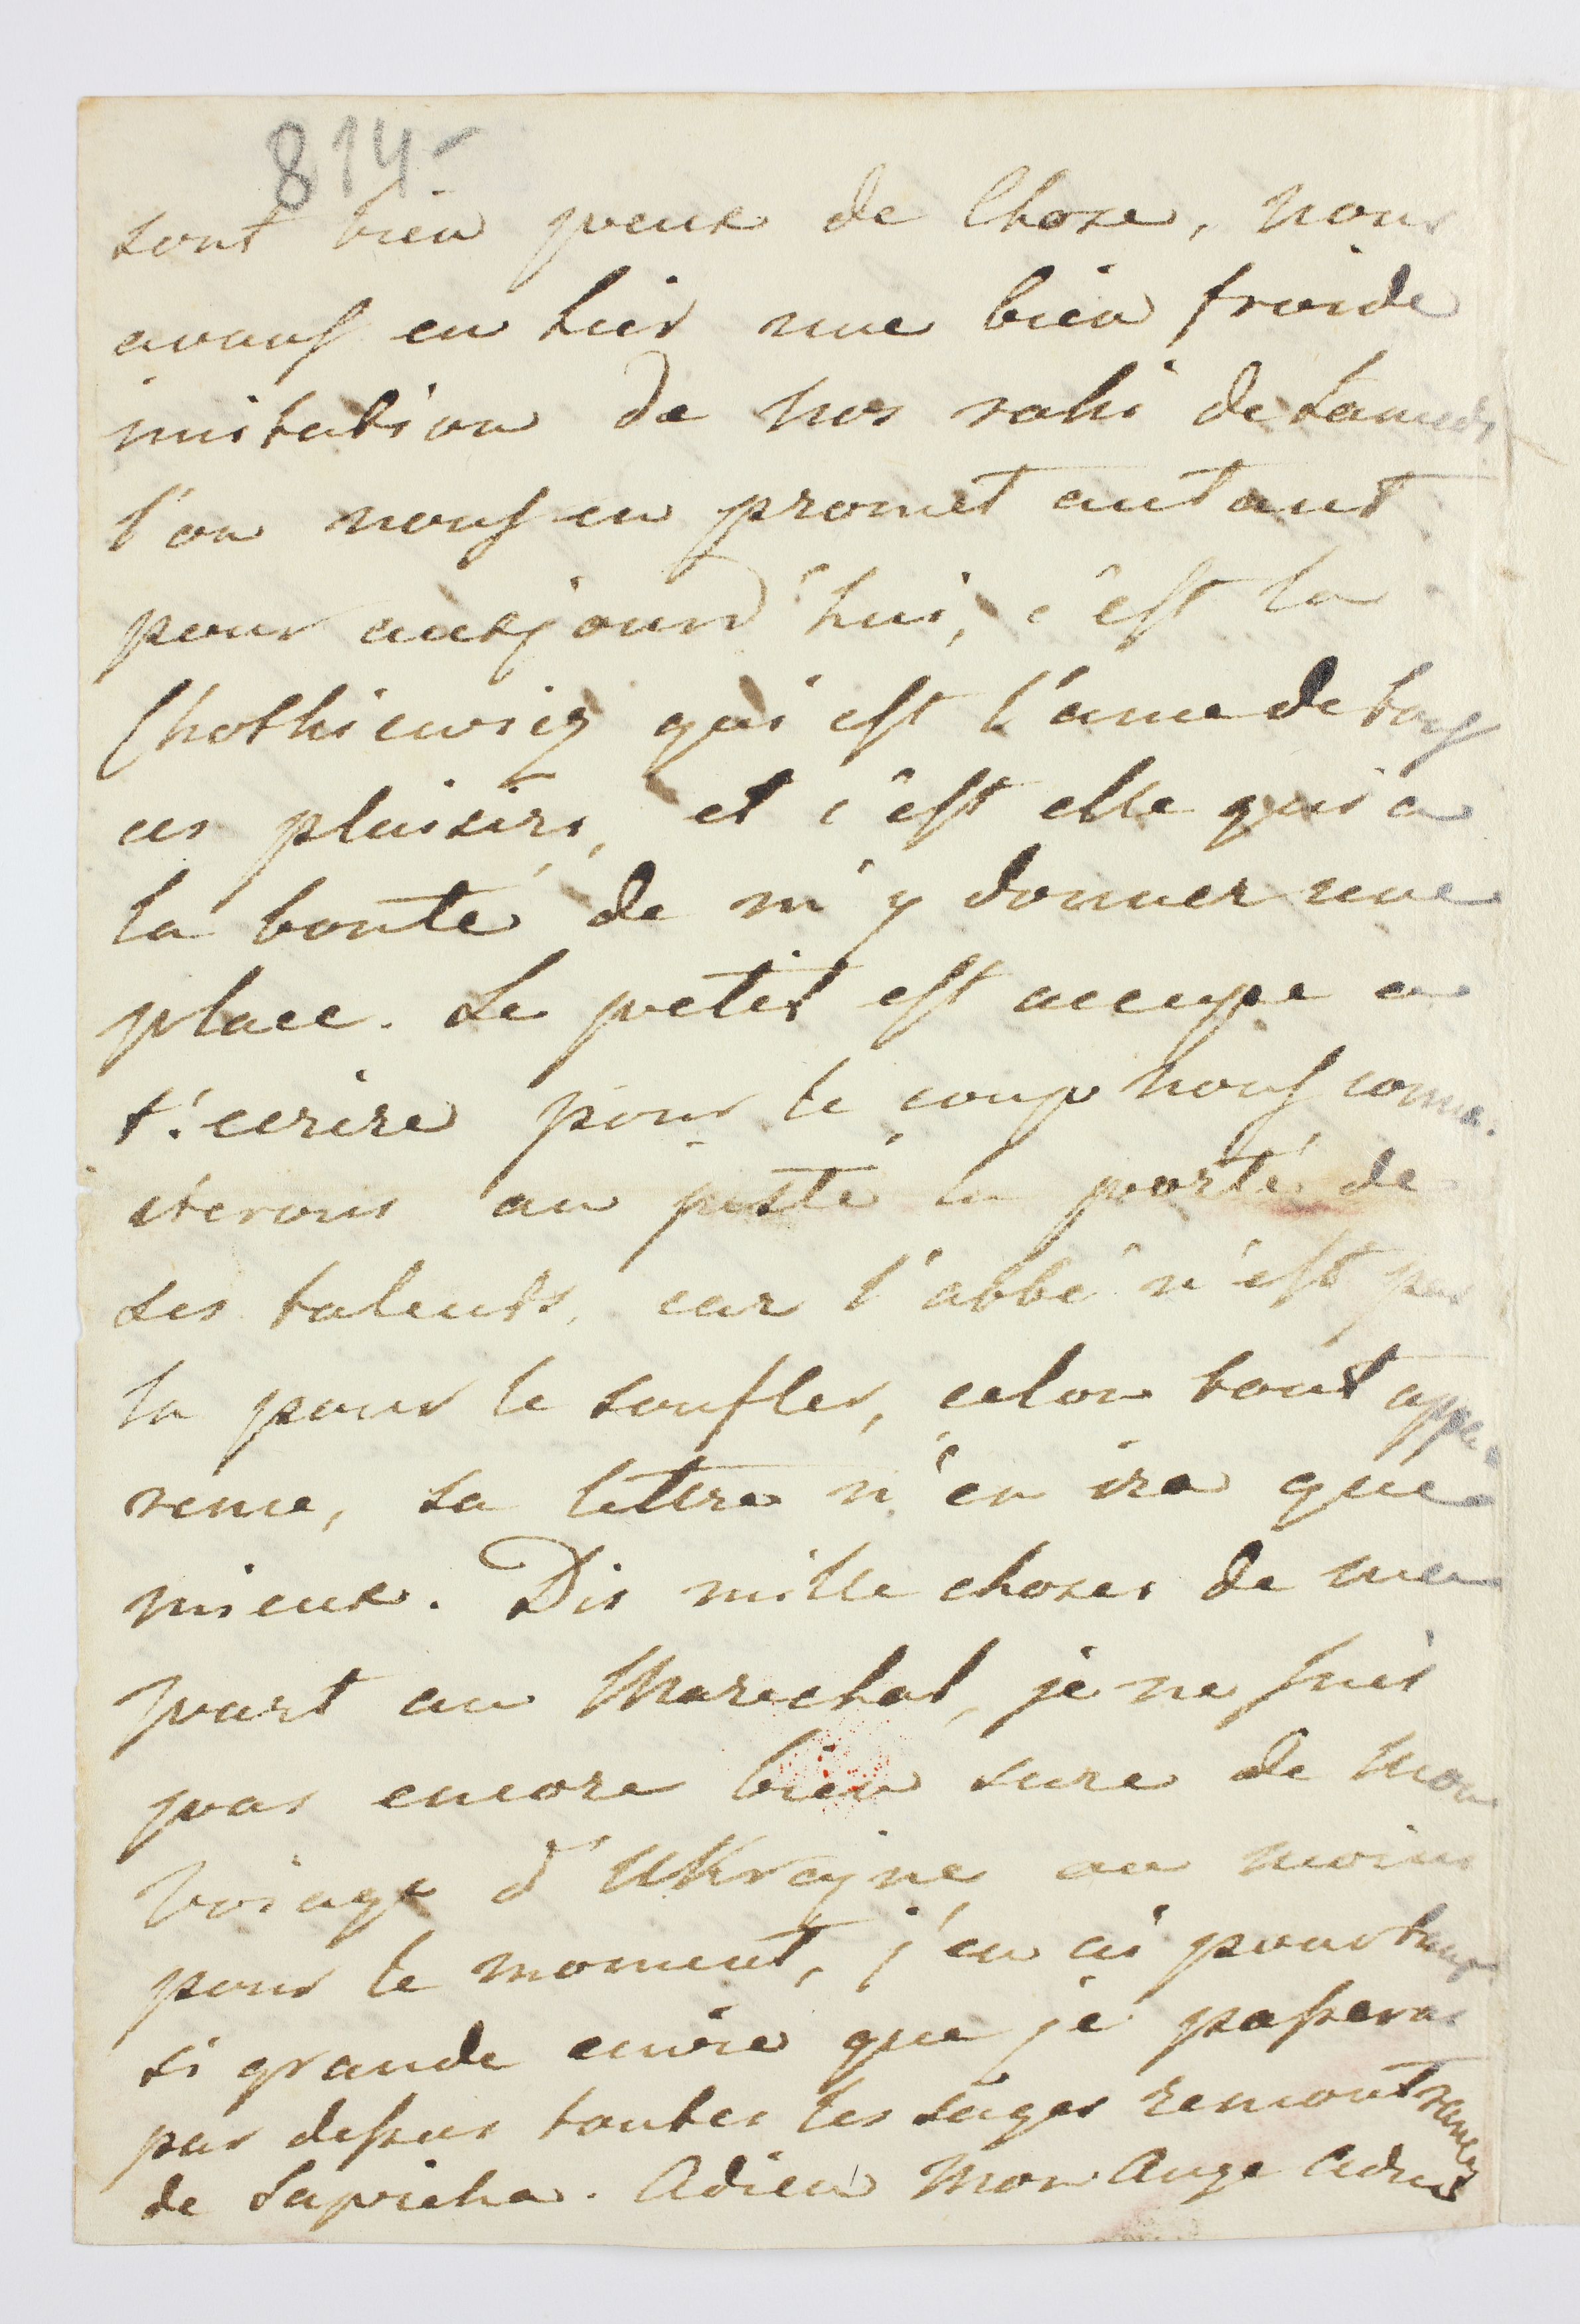 814-
sont bien peux de Chose, nous
avons eu hier une bien froide
imitation de nos rohi de
l'on nous en promet autant
pour auxjourd'hui, c'est la
Chotkiewicz qui est l'ame de tous
ces plaisirs, et c'est elle qui a
la bonté de m'y donner une
place. Le petit est occupe a
t'ecrire pour le coup nous conna-
iterons au juste la porté de
ses talents, car l'abbé n'est pas
la pour le soufler, celon tout appa-
rence, sa lettre n'en ira que
mieux. Dis mille choses de ma
part au Marechal, je ne suis
pas encore bien sure de mon
voiage d'Ukrayne au moins
pour le moment, j'en ai pourtant
si grande envie que je passerai
par dessus toutes les sages remontrances
de Sapieha. Adieu Mon Ange